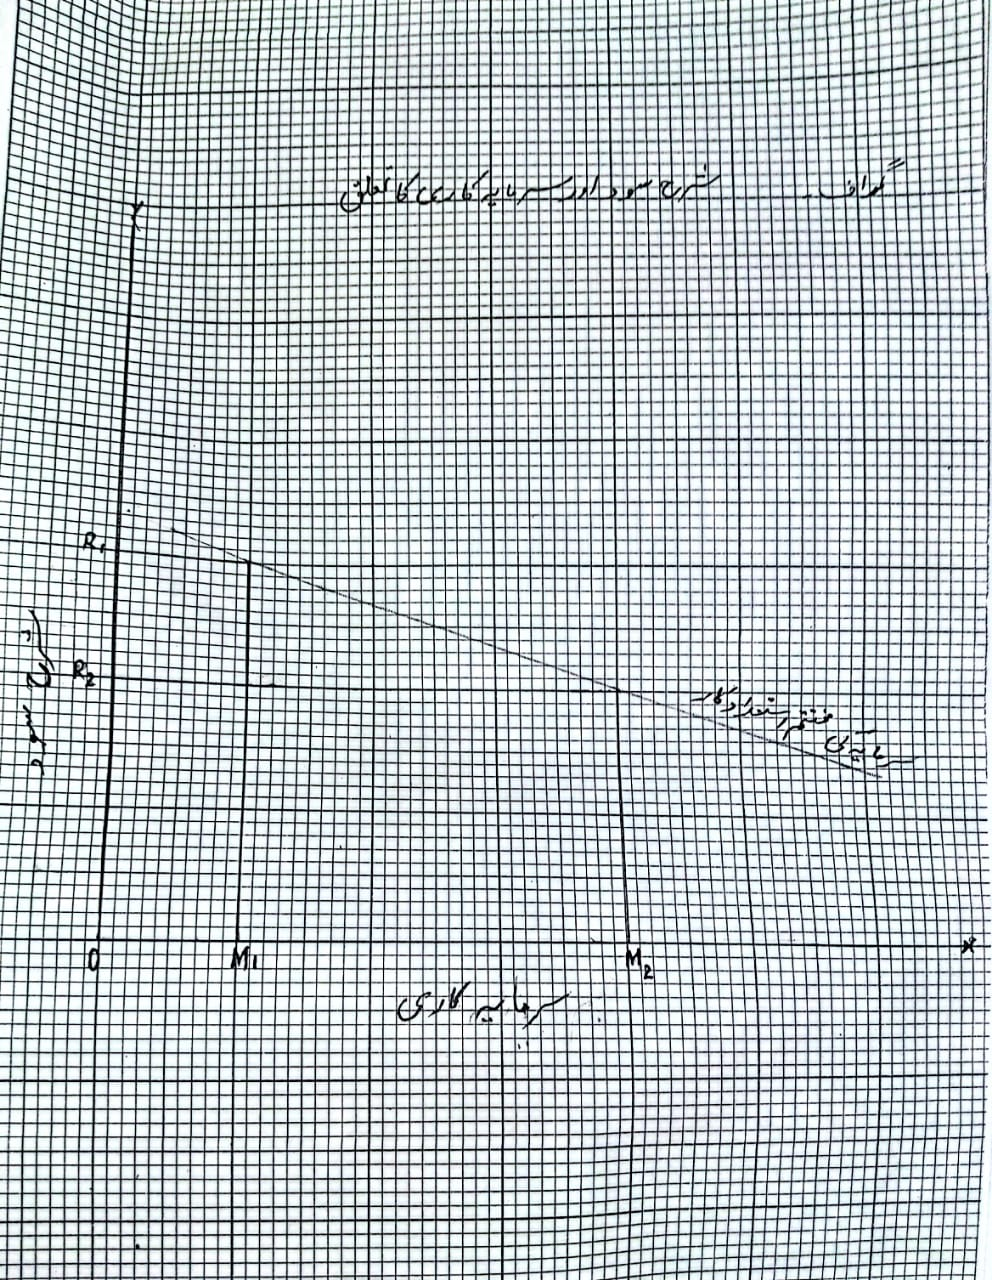 گراف۔ شرح سود اور سرمایہ کاری کا تعلق
Y
R₁
شرح سود
R₂
سرمایہ کی
مختتم استعداد کار
O
M₁
M₂
X
سرمایہ کاری